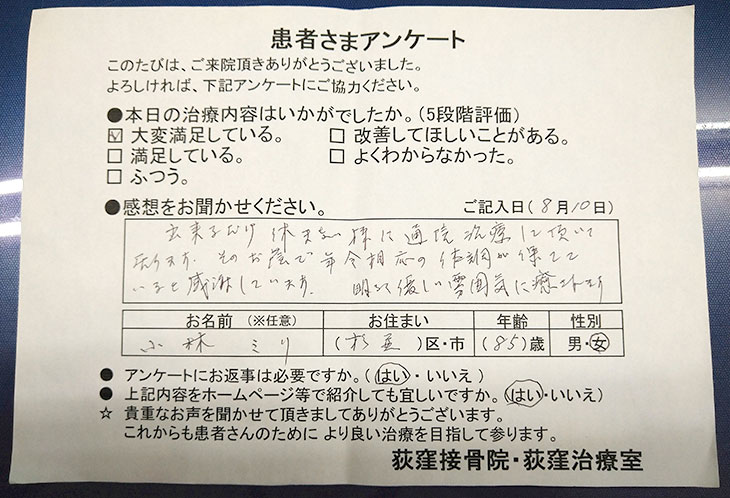 患者さまアンケート
このたびは、ご来院頂きありがとうございました。
よろしければ、下記アンケートにご協力ください。
●本日の治療内容はいかがでしたか。(5段階評価)
☑ 大変満足している。 □ 改善してほしいことがある。
□ 満足している。 □ よくわからなかった。
□ ふつう。
●感想をお聞かせください。 ご記入日(8月10日)
出来るだけ休まない様に通院治療して頂いて
居ります。そのお蔭で年令相応の体調が保てて
いると感謝しています。 明るく優しい雰囲気に癒されます
お名前 (※任意) お住まい 年齢 性別
小林 ミリ (杉並)区・市 (85)歳 男・女
● アンケートにお返事は必要ですか。(はい・いいえ)
● 上記内容をホームページ等で紹介しても宜しいですか。(はい・いいえ)
☆ 貴重なお声を聞かせて頂きましてありがとうございます。
これからも患者さんのために より良い治療を目指して参ります。
荻窪接骨院・荻窪治療室